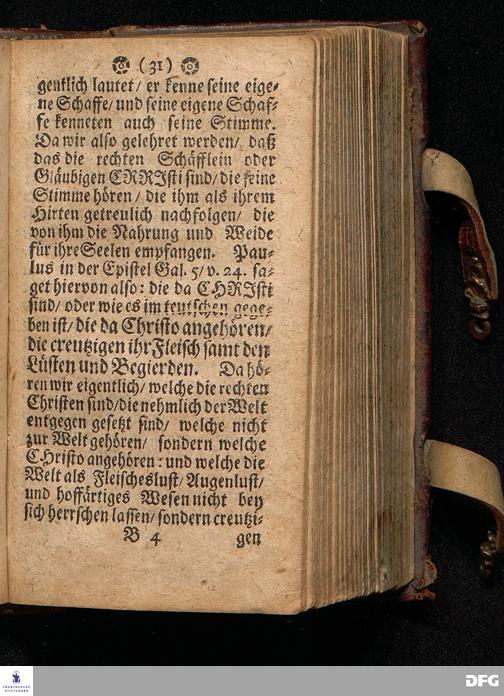 (31)
gentlich lautet/ er kenne seine eige-
ne Schaffe/ und seine eigene Schaf-
fe kenneten auch seine Stimme.
Da wir also gelehret werden/ daß
das die rechten Schäfflein oder
Gläubigen CHRJsti sind/ die seine
Stimme hören/ die ihm als ihrem
Hirten getreulich nachfolgen/ die
von ihm die Nahrung und Weide
für ihre Seelen empfangen. Pau-
lus in der Epistel Gal. 5/ v. 24. sa-
get hiervon also: die da CHRJsti
sind/ oder wie es im teutschen gege-
ben ist/ die da Christo angehören/
die creutzigen ihr Fleisch samt den
Lüsten und Begierden. Da hö-
ren wir eigentlich/ welche die rechten
Christen sind/ die nehmlich der Welt
entgegen gesetzt sind/ welche nicht
zur Welt gehören/ sondern welche
CHristo angehören: und welche die
Welt als Fleischeslust/ Augenlust/
und hoffärtiges Wesen nicht bey
sich herrschen lassen/ sondern creutzi-
B 4 gen
FRANCKESCHE STIFTUNGEN
DFG